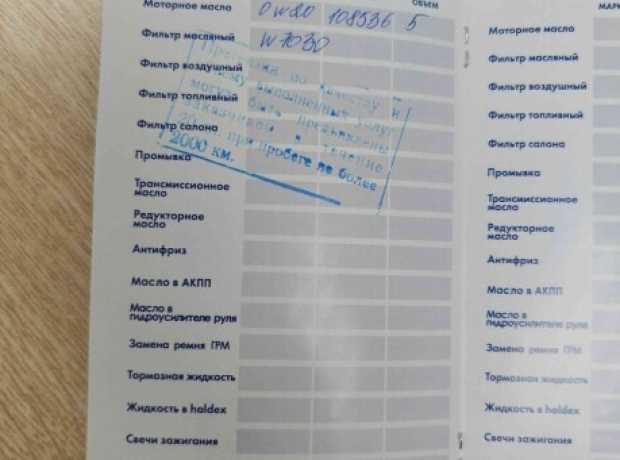 ОБЪЕМ
Моторное масло 0w20 108536 5
Фильтр масляный W7030
Фильтр воздушный
Фильтр топливный
Фильтр салона
Промывка
Трансмиссионное
масло
Редукторное
масло
Антифриз
Масло в АКПП
Масло в
гидроусилителе руля
Замена ремня ГРМ
Тормозная жидкость
Жидкость в haldex
Свечи зажигания
по качеству и
выполненных услуг
могут быть предъявлены
заказчиком в течение
при пробеге не более
2000 км.
МАРК
Моторное масло
Фильтр масляный
Фильтр воздушный
Фильтр топливный
Фильтр салона
Промывка
Трансмиссионное
масло
Редукторное
масло
Антифриз
Масло в АКПП
Масло в
гидроусилителе руля
Замена ремня ГРМ
Тормозная жидкость
Жидкость в haldex
Свечи зажигания